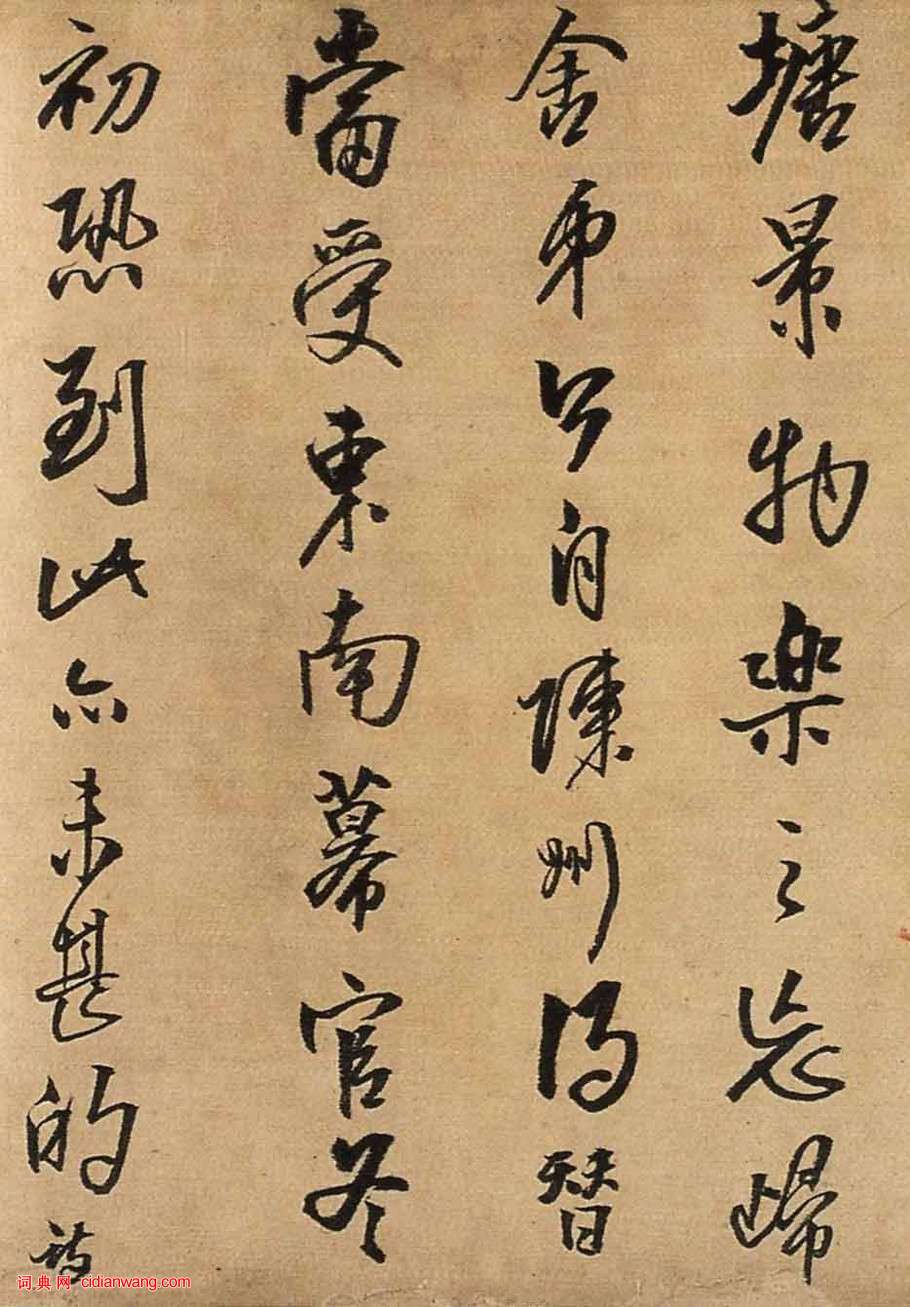 塘景物樂之忘歸
舍弟今自陳州得替
當受東南幕官冬
初恐到此亦未甚的詩
词典网 cidianwang.com